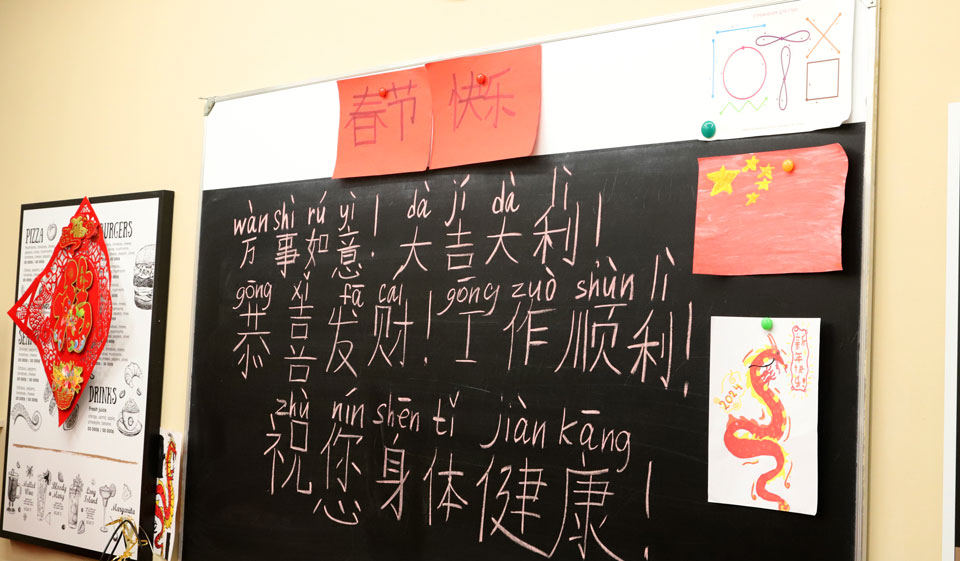 春节 快乐
wàn shì rú yì ! dà jí dà lì
万事如意！大吉大利！
gōng xǐ fā cai gōng zuò shùn lì
恭喜发财！工作顺利！
zhù nín shēn tǐ jiàn kāng
祝您身体健康！
2024
PIZZA
DRINKS
Fresh juice
Mulled Wine
Long Island
Margarita